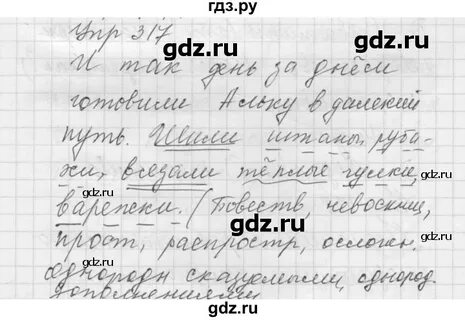 гдз.ру
Упр 317
И так день за днём
готовили Альку в далекий
путь. Шили штаны, руба-
хи, вязали тёплые гулки,
варежки. (Повеств, невосклиц,
прост, распростр, осложн.
однородн сказуемыми, однород.
дополнениями
gdz.ru
gdz.ru
gdz.ru
gdz.ru
gdz.ru
gdz.ru
gdz.ru
gdz.ru